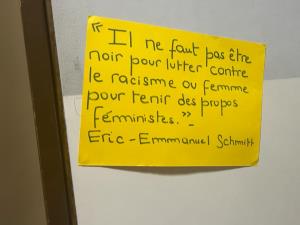 “Il ne faut pas être
noir pour lutter contre
le racisme ou femme
pour tenir des propos
féministes.”
Eric-Emmanuel Schmitt